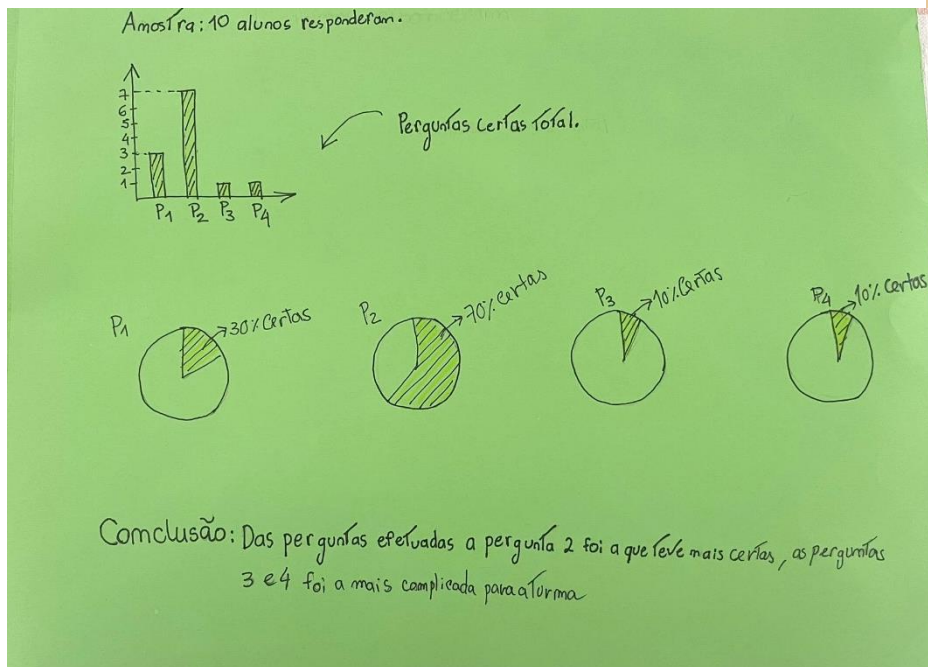 Amostra: 10 alunos responderam.
7
6
5
4
3
2
1
P1 P2 P3 P4
Perguntas certas total.
P1
30% Certas
P2
70% certas
P3
10% Certas
P4
10% Certas
Comclusão: Das perguntas efetuadas a pergunta 2 foi a que teve mais certas, as perguntas
3 e 4 foi a mais complicada para a turma